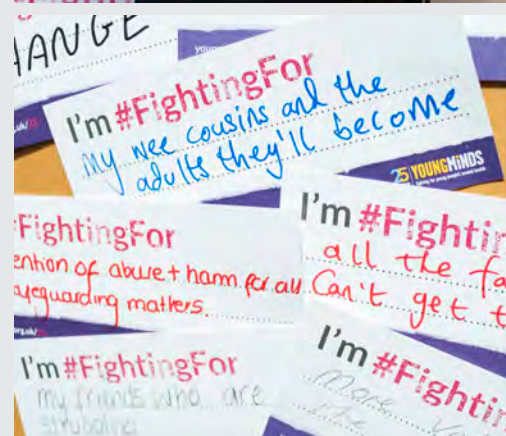 HANGE
I'm #FightingFor
my wee cousins and the
adults they'll become
25 YOUNGMINDS
fighting for young people's mental health
FightingFor
ention of abuse + harm for all
afeguarding matters.
I'm #Fightin
all the fa
Can't get t
I'm #FightingFor
my friends who are
struggling
I'm #Fightin
more
the